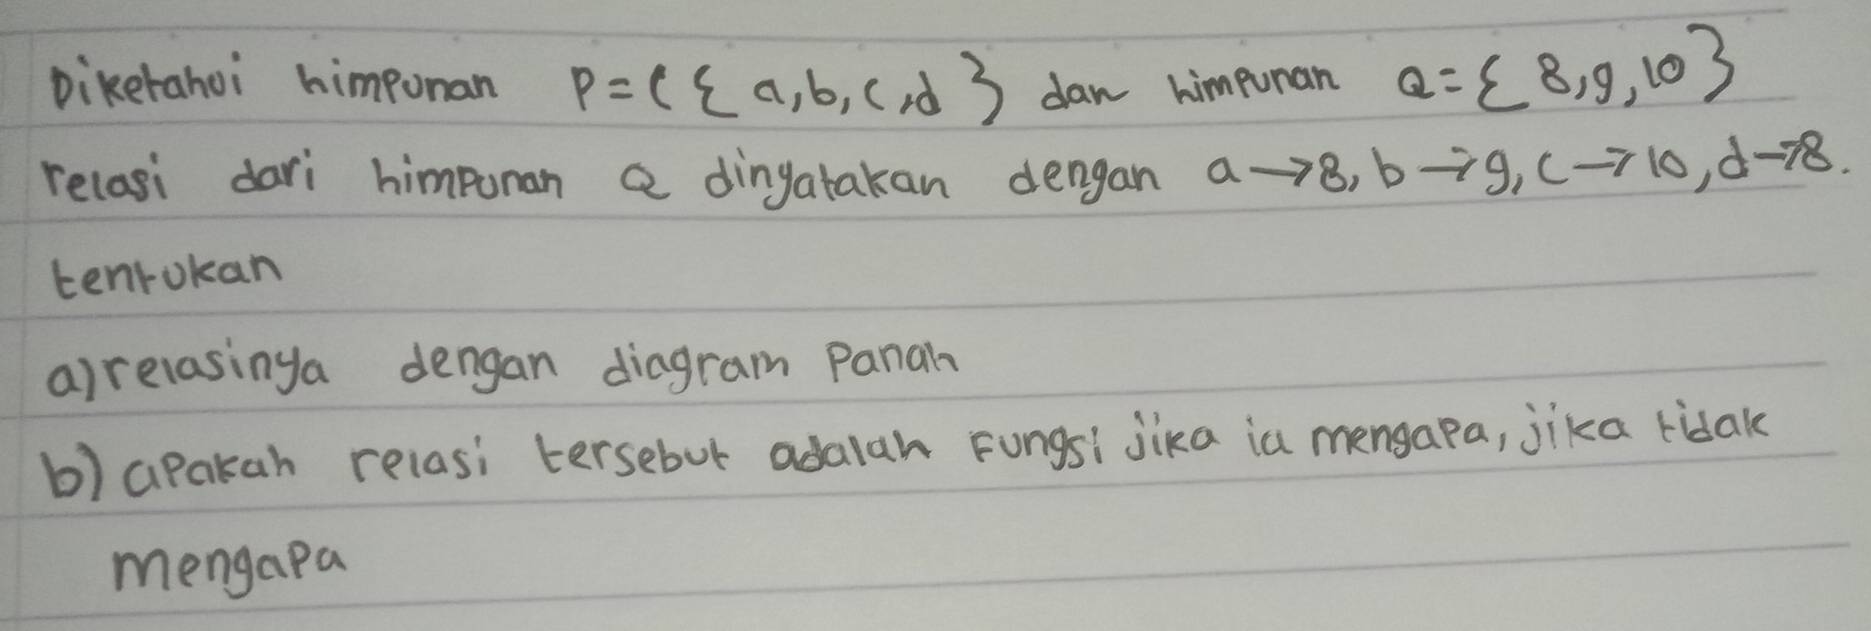 Diketahui himpunan P=( { a,b,c,d } dan himpunan Q={ 8,9,10 }
relasi dari himpunan Q dinyatakan dengan a→8, b→9, c→10, d→8.
tentukan
a) relasinya dengan diagram Panah
b) apakah relasi tersebut adalah Fungsi jika ia mengapa, jika tidak
mengapa